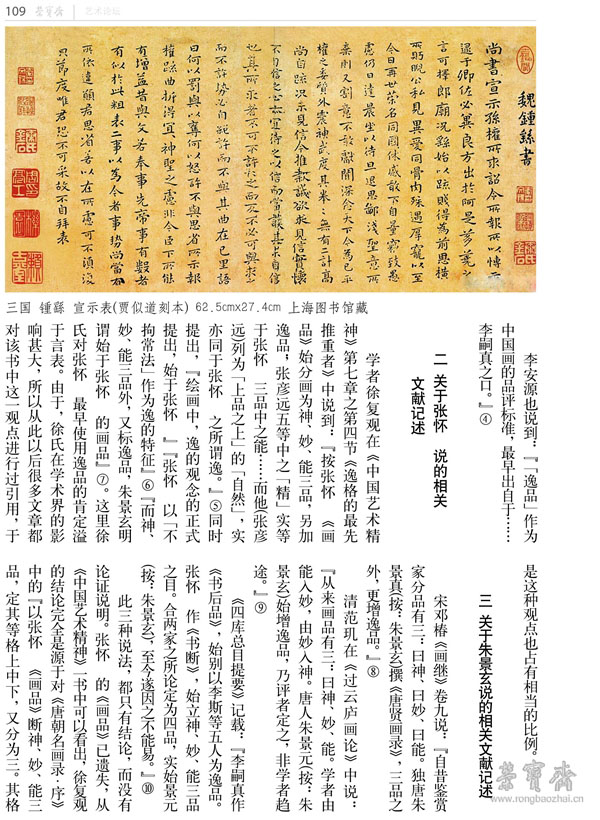 109
荣宝斋
艺术论坛
魏鍾繇書
尚書宣示孫權所求詔令所報所以博示
逮于卿佐必冀良方出於阿是芻蕘之
言可擇郎廟況繇始以疏賤得為前恩橫
所盼睨公私見異愛同骨肉殊遇厚寵以至
今日再世榮名同國休慼敢不自量竊致愚
慮仍日達晨坐以待旦退思鄙淺聖意所
棄則又割意不敢獻聞深念天下今為已平
權之委質外震神武度其拳拳無有二計高
尚自疏況未見信今推款誠欲求見信實懷
不自信之心亦宜待之以信而當護其未自信
也其所求者不可不許許之而反不必可與求之
而不許勢必自絕許而不與其曲在己里語
曰何以罰與以奪何以怒許不與思省所示報
權疏曲折得宜宜神聖之慮非今臣下所能
有增益昔與文若奉事先帝事有數者
有似於此粗表二事以為今者事勢尚當有
所依違願君思省若以在所慮可不須復
皃節度唯君恐不可采故不自拜表
三国 锺繇 宣示表(贾似道刻本) 62.5cmx27.4cm 上海图书馆藏
李安源也说到：『「逸品」作为
中国画的品评标准，最早出自于……
李嗣真之口。』④
二 关于张怀 说的相关
文献记述
学者徐复观在《中国艺术精
神》第七章之第四节《逸格的最先
推重者》中说到：『按张怀 《画
品》始分画为神、妙、能三品，另加
逸品；张彦远五等中之「精」实等
于张怀 三品中之能……而他（张彦
远）列为「上品之上」的「自然」，实
亦同于张怀 之所谓逸。』⑤同时
提出，『绘画中，逸的观念的正式
提出，始于张怀 』『张怀 以「不
拘常法」作为逸的特征』⑥『而神、
妙、能三品外，又标逸品，朱景玄明
谓始于张怀 的画品』⑦。这里徐
氏对张怀 最早使用逸品的肯定溢
于言表。由于，徐氏在学术界的影
响甚大，所以从此以后很多文章都
对该书中这一观点进行过引用，于
是这种观点也占有相当的比例。
三 关于朱景玄说的相关文献记述
宋邓椿《画继》卷九说：『自昔鉴赏
家分品有三：曰神、曰妙、曰能。独唐朱
景真（按：朱景玄）撰《唐贤画录》，三品之
外，更增逸品。』⑧
清范玑在《过云庐画论》中说：
『从来画品有三：曰神、妙、能。学者由
能入妙，由妙入神。唐人朱景元（按：朱
景玄）始增逸品，乃评者定之，非学者趋
途。』⑨
《四库总目提要》记载：『李嗣真作
《书后品》，始别以李斯等五人为逸品。
张怀 作《书断》，始立神、妙、能三品
之目。合两家之所论定为四品，实始景元
（按：朱景玄），至今遂因之不能易。』⑩
此三种说法，都只有结论，而没有
论证说明。张怀 的《画品》已遗失，从
《中国艺术精神》一书中可以看出，徐复观
的结论完全是源于对《唐朝名画录·序》
中的『以张怀 《画品》断神、妙、能三
品，定其等格上中下，又分为三。其格
荣宝斋
www.rongbaozhai.cn